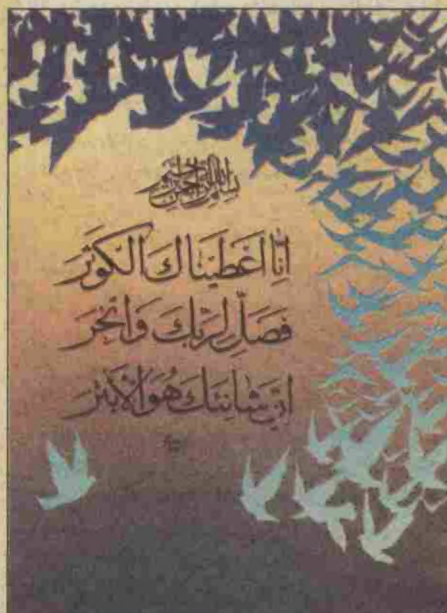 بسم الله الرحمن الرحيم
انا اعطيناك الكوثر
فصل لربك وانحر
ان شانئك هو الابتر